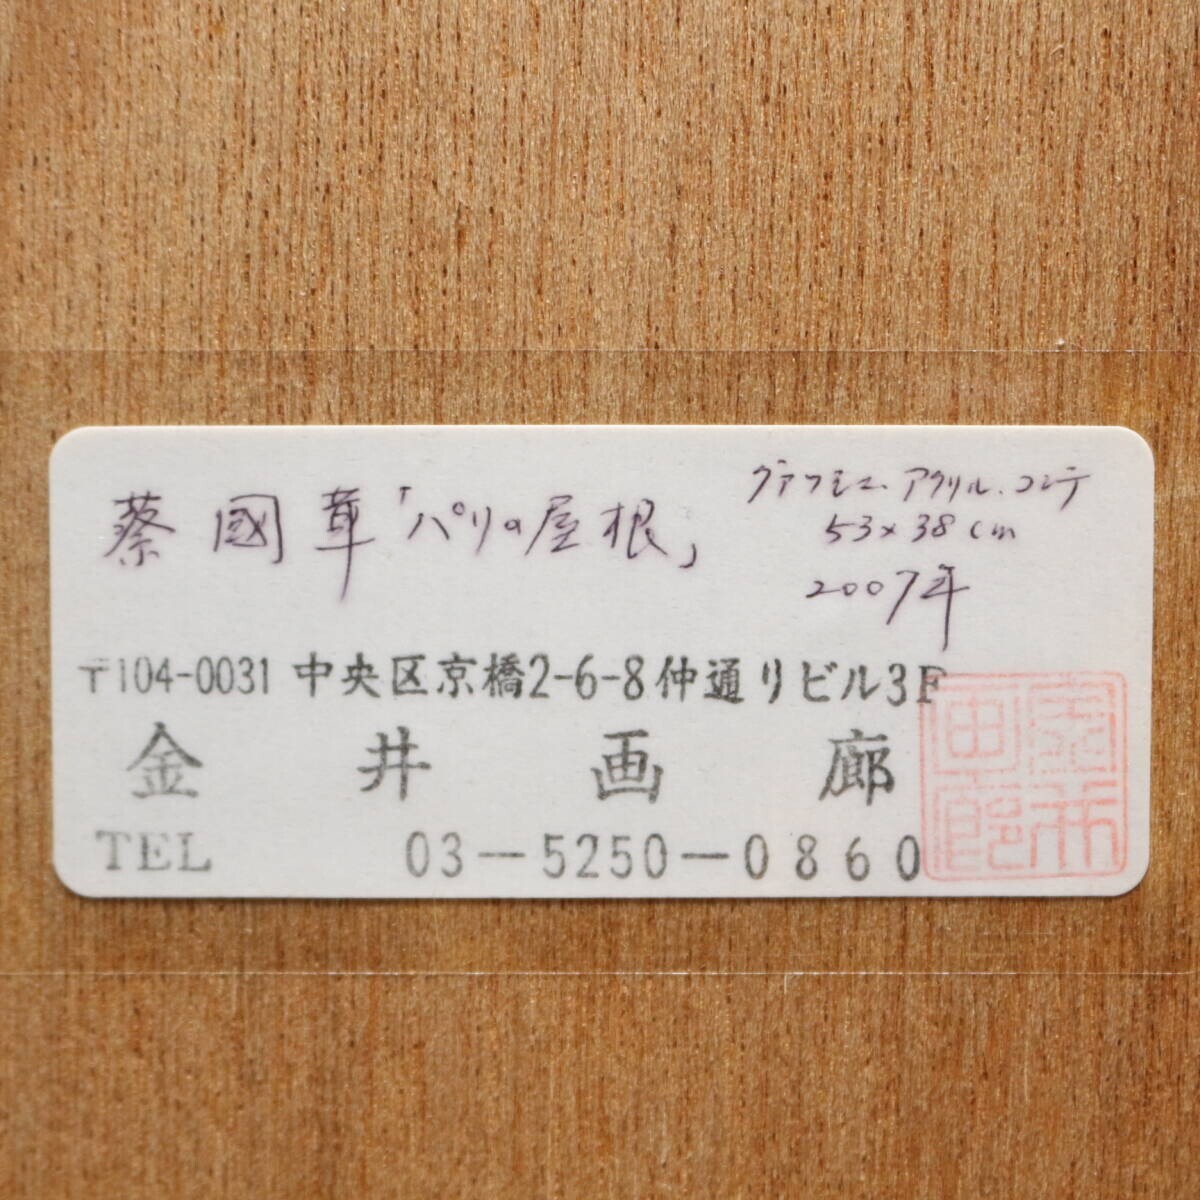 蔡國華「パリの屋根」
グァッシュ、アクリル、コンテ
53×38cm
2007年
〒104-0031 中央区京橋2-6-8仲通りビル3F
金井画廊
TEL 03-5250-0860
金井画廊